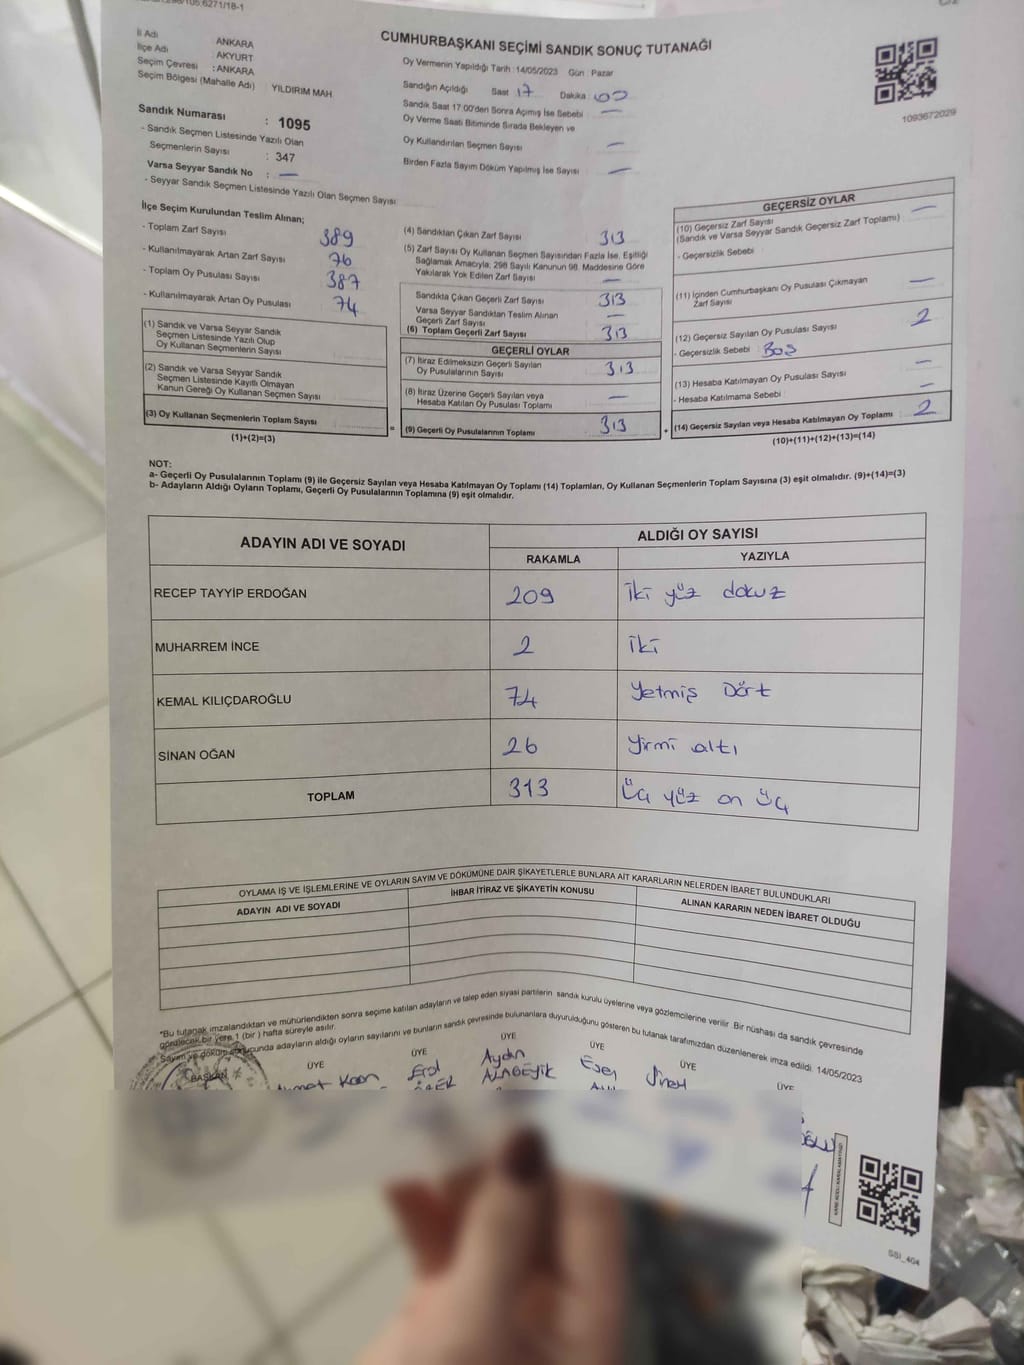 CUMHURBAŞKANI SEÇİMİ SANDIK SONUÇ TUTANAĞI
İl Adı ANKARA
İlçe Adı : AKYURT
Seçim Çevresi : ANKARA
Seçim Bölgesi (Mahalle Adı) : YILDIRIM MAH.
Sandık Numarası : 1095
- Sandık Seçmen Listesinde Yazılı Olan
Seçmenlerin Sayısı : 347
Varsa Seyyar Sandık No : —
- Seyyar Sandık Seçmen Listesinde Yazılı Olan Seçmen Sayısı
Oy Vermenin Yapıldığı Tarih : 14/05/2023 Gün : Pazar
Sandığın Açıldığı Saat : 17 Dakika : 00
Sandık Saat 17:00'den Sonra Açımış İse Sebebi : —
Oy Verme Saati Bitiminde Sırada Bekleyen ve
Oy Kullandırılan Seçmen Sayısı : —
Birden Fazla Sayım Döküm Yapılmış İse Sayısı : —
1093672029
İlçe Seçim Kurulundan Teslim Alınan;
- Toplam Zarf Sayısı 389
- Kullanılmayarak Artan Zarf Sayısı 76
- Toplam Oy Pusulası Sayısı 387
- Kullanılmayarak Artan Oy Pusulası 74
(1) Sandık ve Varsa Seyyar Sandık
Seçmen Listesinde Yazılı Olup
Oy Kullanan Seçmenlerin Sayısı
(2) Sandık ve Varsa Seyyar Sandık
Seçmen Listesinde Kayıtlı Olmayan
Kanun Gereği Oy Kullanan Seçmen Sayısı
(3) Oy Kullanan Seçmenlerin Toplam Sayısı
(1)+(2)=(3)
(4) Sandıktan Çıkan Zarf Sayısı 313
(5) Zarf Sayısı Oy Kullanan Seçmen Sayısından Fazla İse, Eşitliği
Sağlamak Amacıyla; 298 Sayılı Kanunun 98. Maddesine Göre
Yakılarak Yok Edilen Zarf Sayısı —
Sandıkta Çıkan Geçerli Zarf Sayısı 313
Varsa Seyyar Sandıktan Teslim Alınan
Geçerli Zarf Sayısı —
(6) Toplam Geçerli Zarf Sayısı 313
GEÇERLİ OYLAR
(7) İtiraz Edilmeksizin Geçerli Sayılan
Oy Pusulalarının Sayısı 313
(8) İtiraz Üzerine Geçerli Sayılan veya
Hesaba Katılan Oy Pusulası Toplamı —
= (9) Geçerli Oy Pusulalarının Toplamı 313 +
GEÇERSİZ OYLAR
(10) Geçersiz Zarf Sayısı —
(Sandık ve Varsa Seyyar Sandık Geçersiz Zarf Toplamı)
- Geçersizlik Sebebi
(11) İçinden Cumhurbaşkanı Oy Pusulası Çıkmayan
Zarf Sayısı —
(12) Geçersiz Sayılan Oy Pusulası Sayısı 2
- Geçersizlik Sebebi : BOŞ
(13) Hesaba Katılmayan Oy Pusulası Sayısı —
- Hesaba Katılmama Sebebi : —
(14) Geçersiz Sayılan veya Hesaba Katılmayan Oy Toplamı 2
(10)+(11)+(12)+(13)=(14)
NOT:
a- Geçerli Oy Pusulalarının Toplamı (9) ile Geçersiz Sayılan veya Hesaba Katılmayan Oy Toplamı (14) Toplamları, Oy Kullanan Seçmenlerin Toplam Sayısına (3) eşit olmalıdır. (9)+(14)=(3)
b- Adayların Aldığı Oyların Toplamı, Geçerli Oy Pusulalarının Toplamına (9) eşit olmalıdır.
ADAYIN ADI VE SOYADI ALDIĞI OY SAYISI
RAKAMLA YAZIYLA
RECEP TAYYİP ERDOĞAN 209 İki yüz dokuz
MUHARREM İNCE 2 İki
KEMAL KILIÇDAROĞLU 74 Yetmiş Dört
SİNAN OĞAN 26 Yirmi altı
TOPLAM 313 Üç yüz on üç
OYLAMA İŞ VE İŞLEMLERİNE VE OYLARIN SAYIM VE DÖKÜMÜNE DAİR ŞİKAYETLERLE BUNLARA AİT KARARLARIN NELERDEN İBARET BULUNDUKLARI
ADAYIN ADI VE SOYADI İHBAR İTİRAZ VE ŞİKAYETİN KONUSU ALINAN KARARIN NEDEN İBARET OLDUĞU
*Bu tutanak imzalandıktan ve mühürlendikten sonra seçime katılan adayların ve talep eden siyasi partilerin sandık kurulu üyelerine veya gözlemcilerine verilir. Bir nüshası da sandık çevresinde
görülecek bir yere 1 (bir) hafta süreyle asılır.
adayların aldığı oyların sayılarını ve bunların sandık çevresinde bulunanlara duyurulduğunu gösteren bu tutanak tarafımızdan düzenlenerek imza edildi. 14/05/2023
BAŞKAN ÜYE ÜYE ÜYE ÜYE ÜYE ÜYE
Aydın
ALAGEYİK
SSI_404